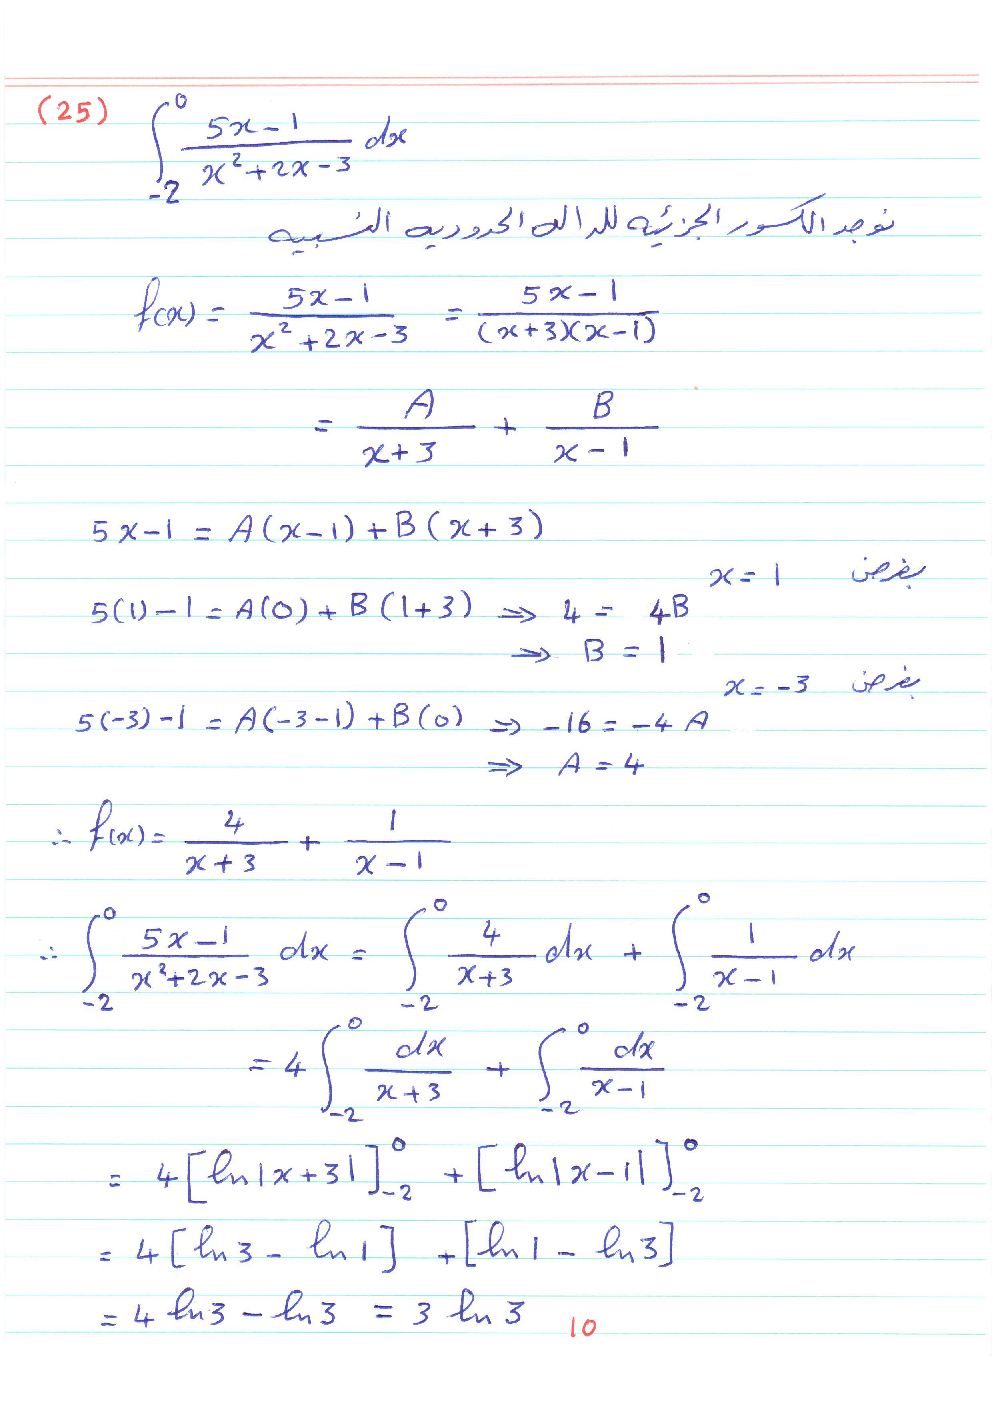 (25) ∫_{-2}^{0} (5x-1)/(x²+2x-3) dx
نوجد الكسور الجزئية للدالة الحدودية النسبية
f(x) = (5x-1)/(x²+2x-3) = (5x-1)/((x+3)(x-1))
= A/(x+3) + B/(x-1)
5x-1 = A(x-1) + B(x+3)
بفرض x=1
5(1)-1 = A(0) + B(1+3) ⇒ 4 = 4B
⇒ B = 1
بفرض x=-3
5(-3)-1 = A(-3-1) + B(0) ⇒ -16 = -4A
⇒ A = 4
∴ f(x) = 4/(x+3) + 1/(x-1)
∴ ∫_{-2}^{0} (5x-1)/(x²+2x-3) dx = ∫_{-2}^{0} 4/(x+3) dx + ∫_{-2}^{0} 1/(x-1) dx
= 4 ∫_{-2}^{0} dx/(x+3) + ∫_{-2}^{0} dx/(x-1)
= 4[ln|x+3|]_{-2}^{0} + [ln|x-1|]_{-2}^{0}
= 4[ln3 - ln1] + [ln1 - ln3]
= 4 ln3 - ln3 = 3 ln3
10